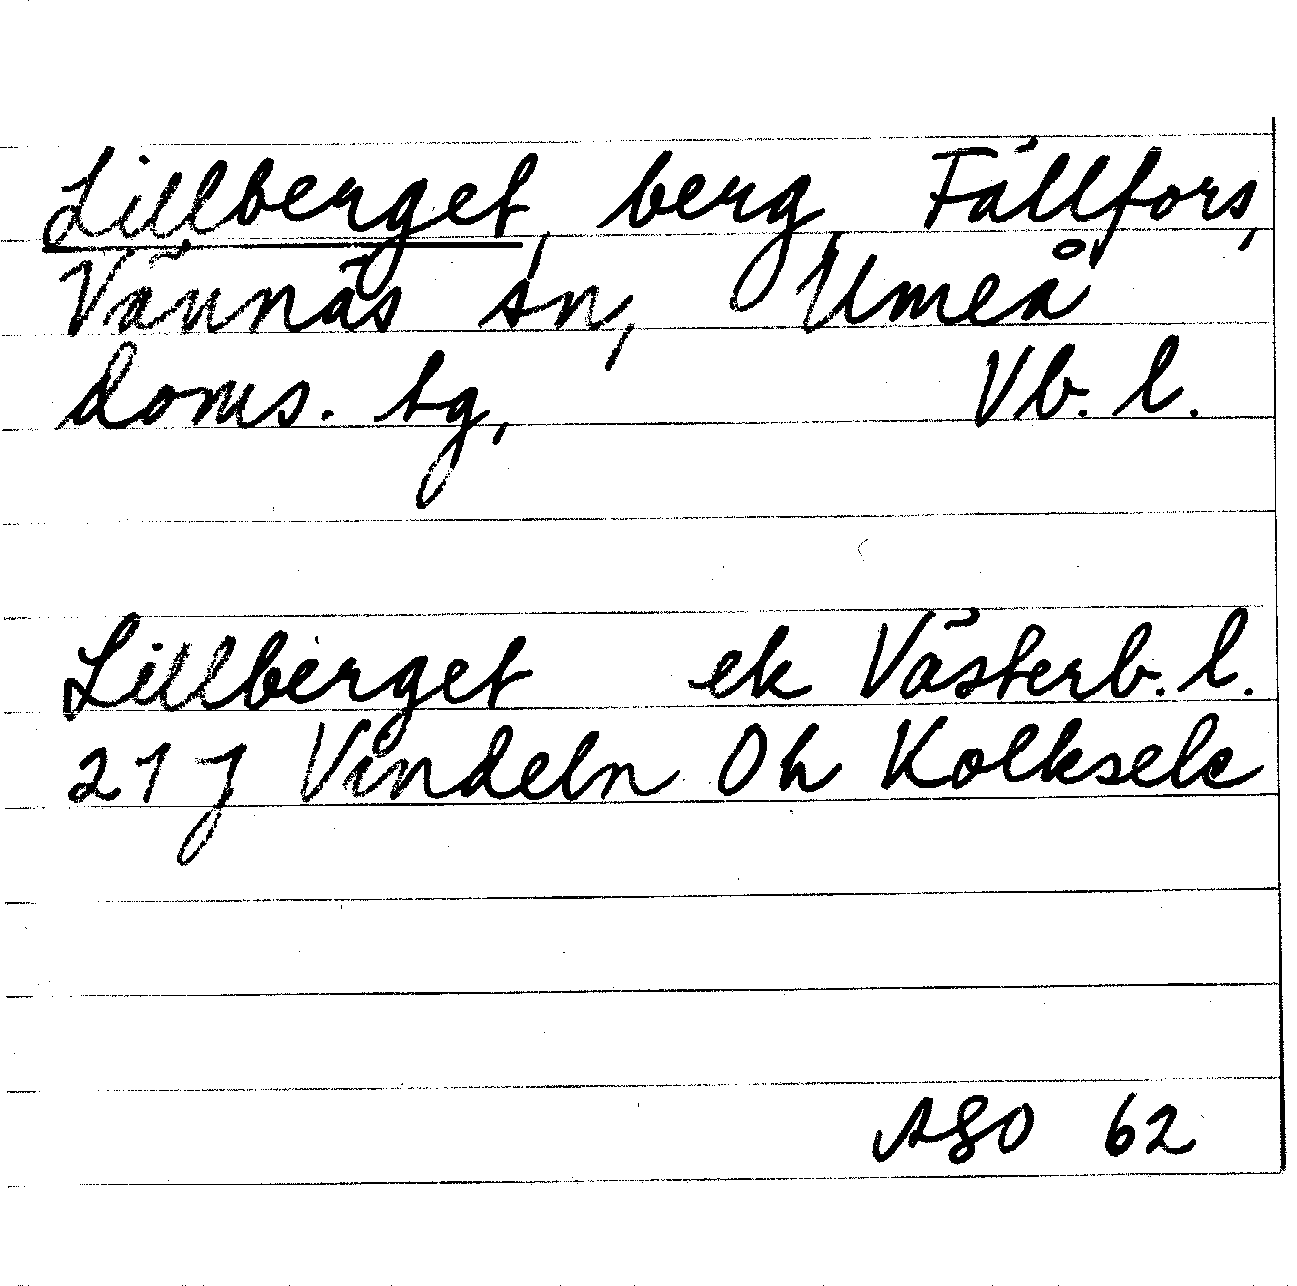 Lillberget, berg, Fällfors,
Vännäs sn, Umeå
doms. tg, Vb. l.
Lillberget ek Västerb. l.
21 J Vindeln Oh Kolksele
ASO 62